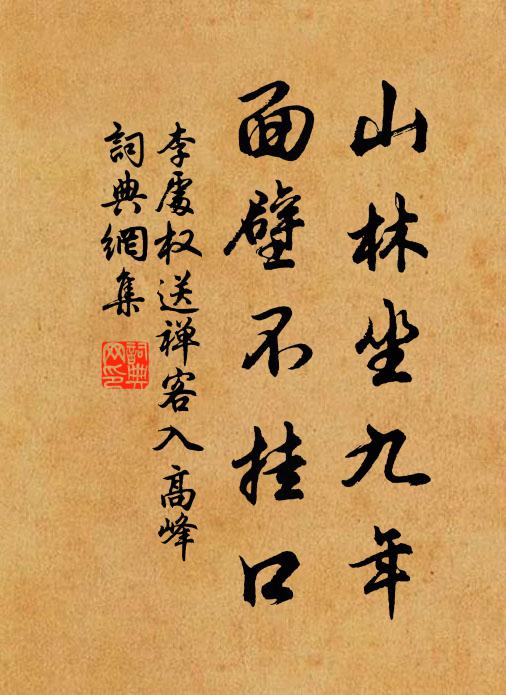 山林坐九年
面壁不挂口
李處权送禅客入高峰
詞典網集
詞典網印